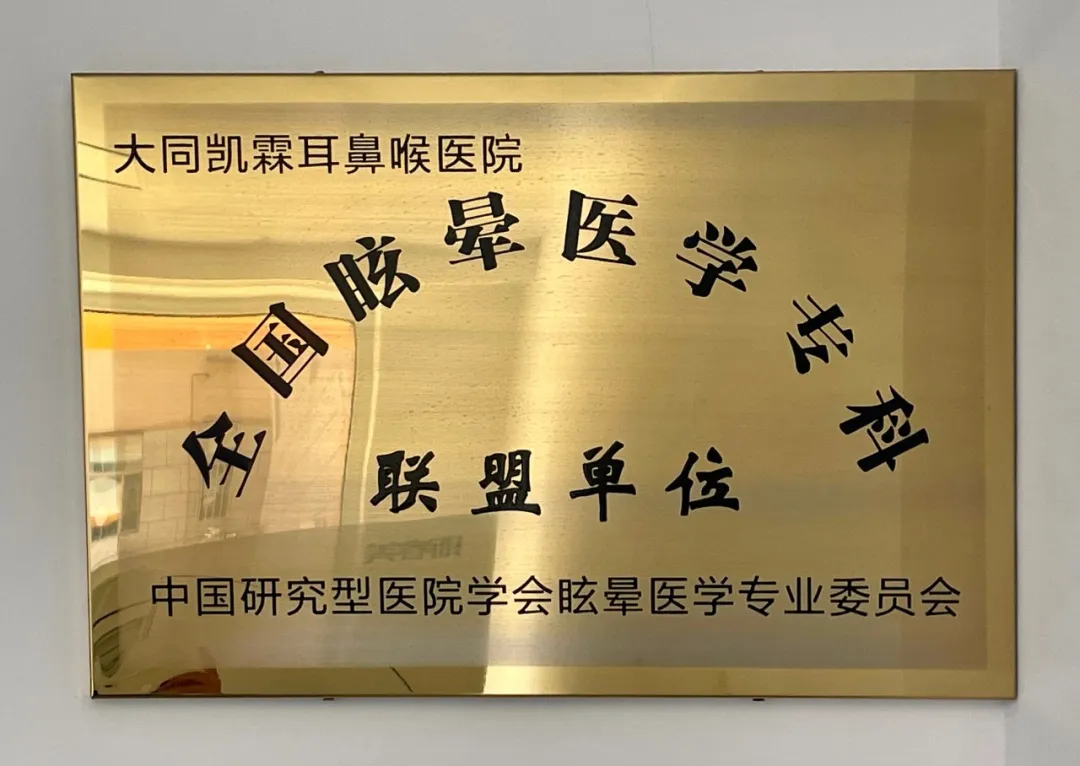 大同凯霖耳鼻喉医院
全国眩晕医学专科
联盟单位
中国研究型医院学会眩晕医学专业委员会